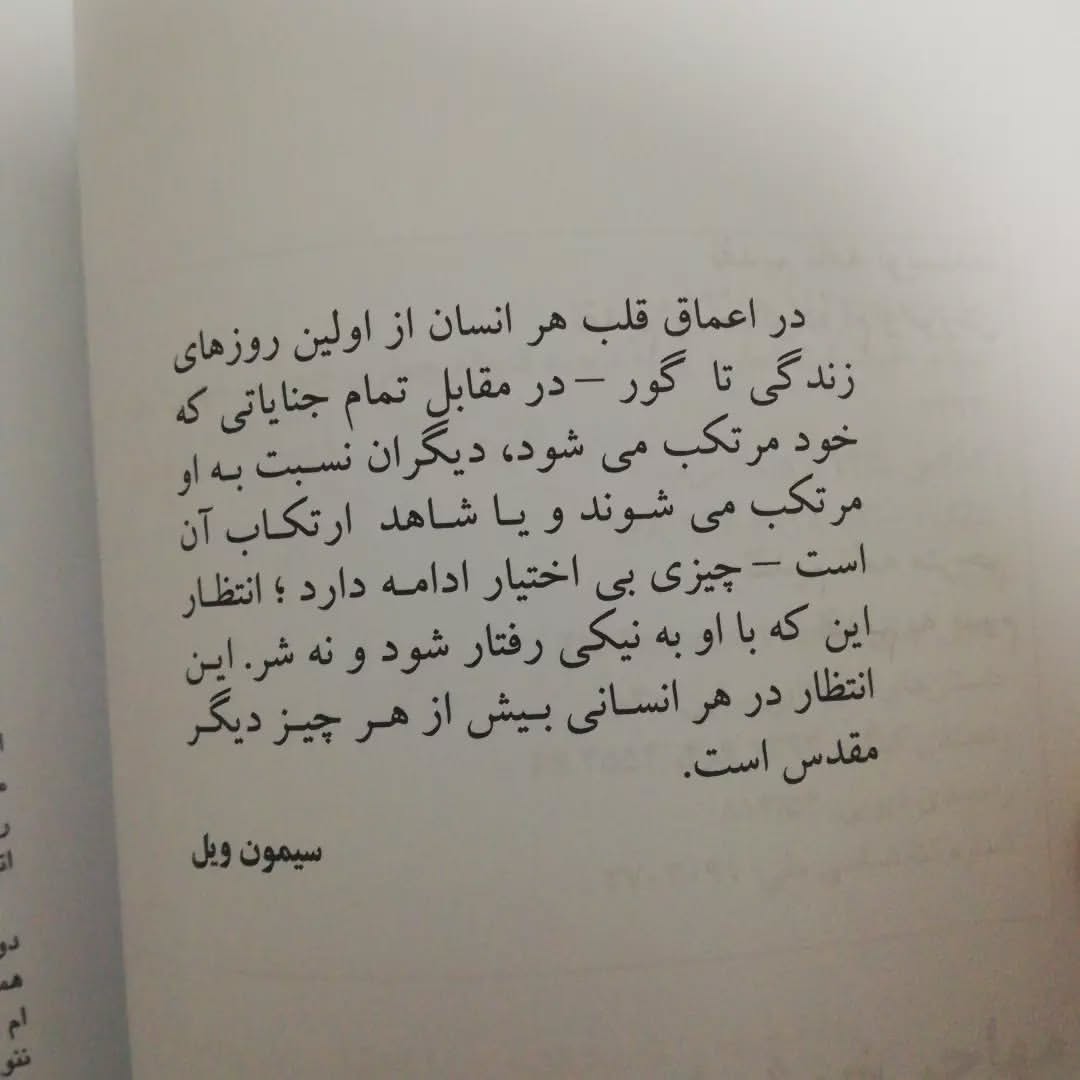 در اعماق قلب هر انسان از اولین روزهای
زندگی تا گور – در مقابل تمام جنایاتی که
خود مرتکب می شود، دیگران نسبت به او
مرتکب می شوند و یا شاهد ارتکاب آن
است – چیزی بی اختیار ادامه دارد ؛ انتظار
این که با او به نیکی رفتار شود و نه شر. این
انتظار در هر انسانی بیش از هر چیز دیگر
مقدس است.
سیمون ویل